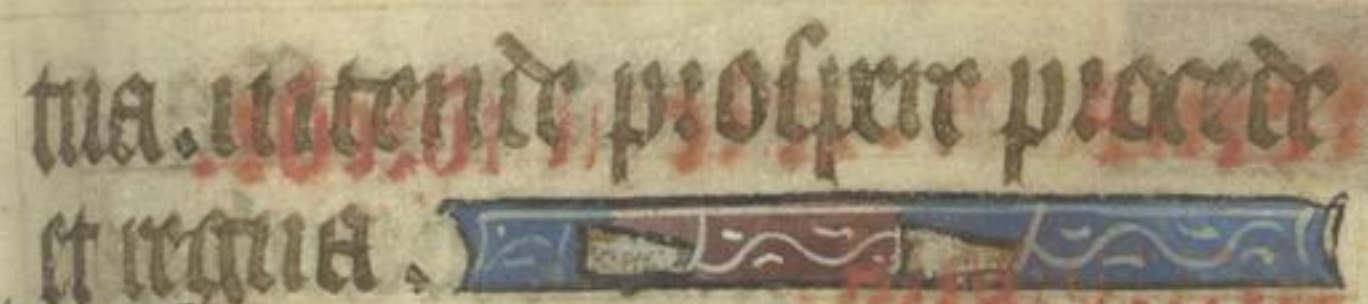 tua. intende prospere procede
et regna.